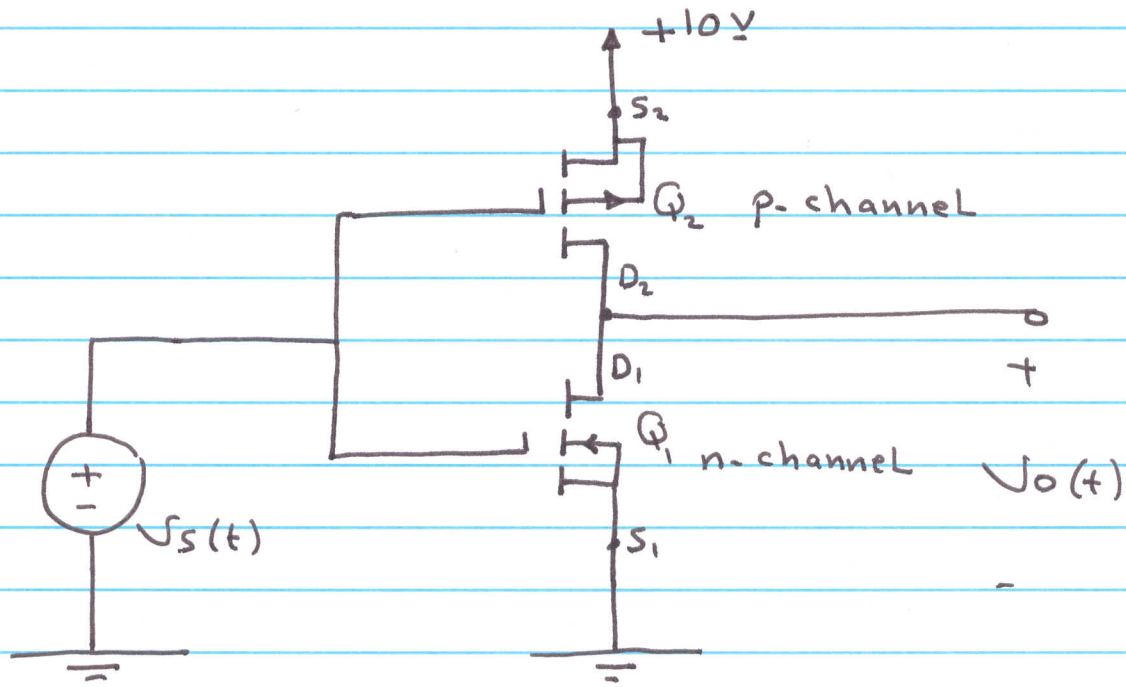 +10V
S₂
Q₂ p-channel
D₂
D₁
+
Q₁ n-channel
+
-
Vs(t)
Vo(t)
S₁
-